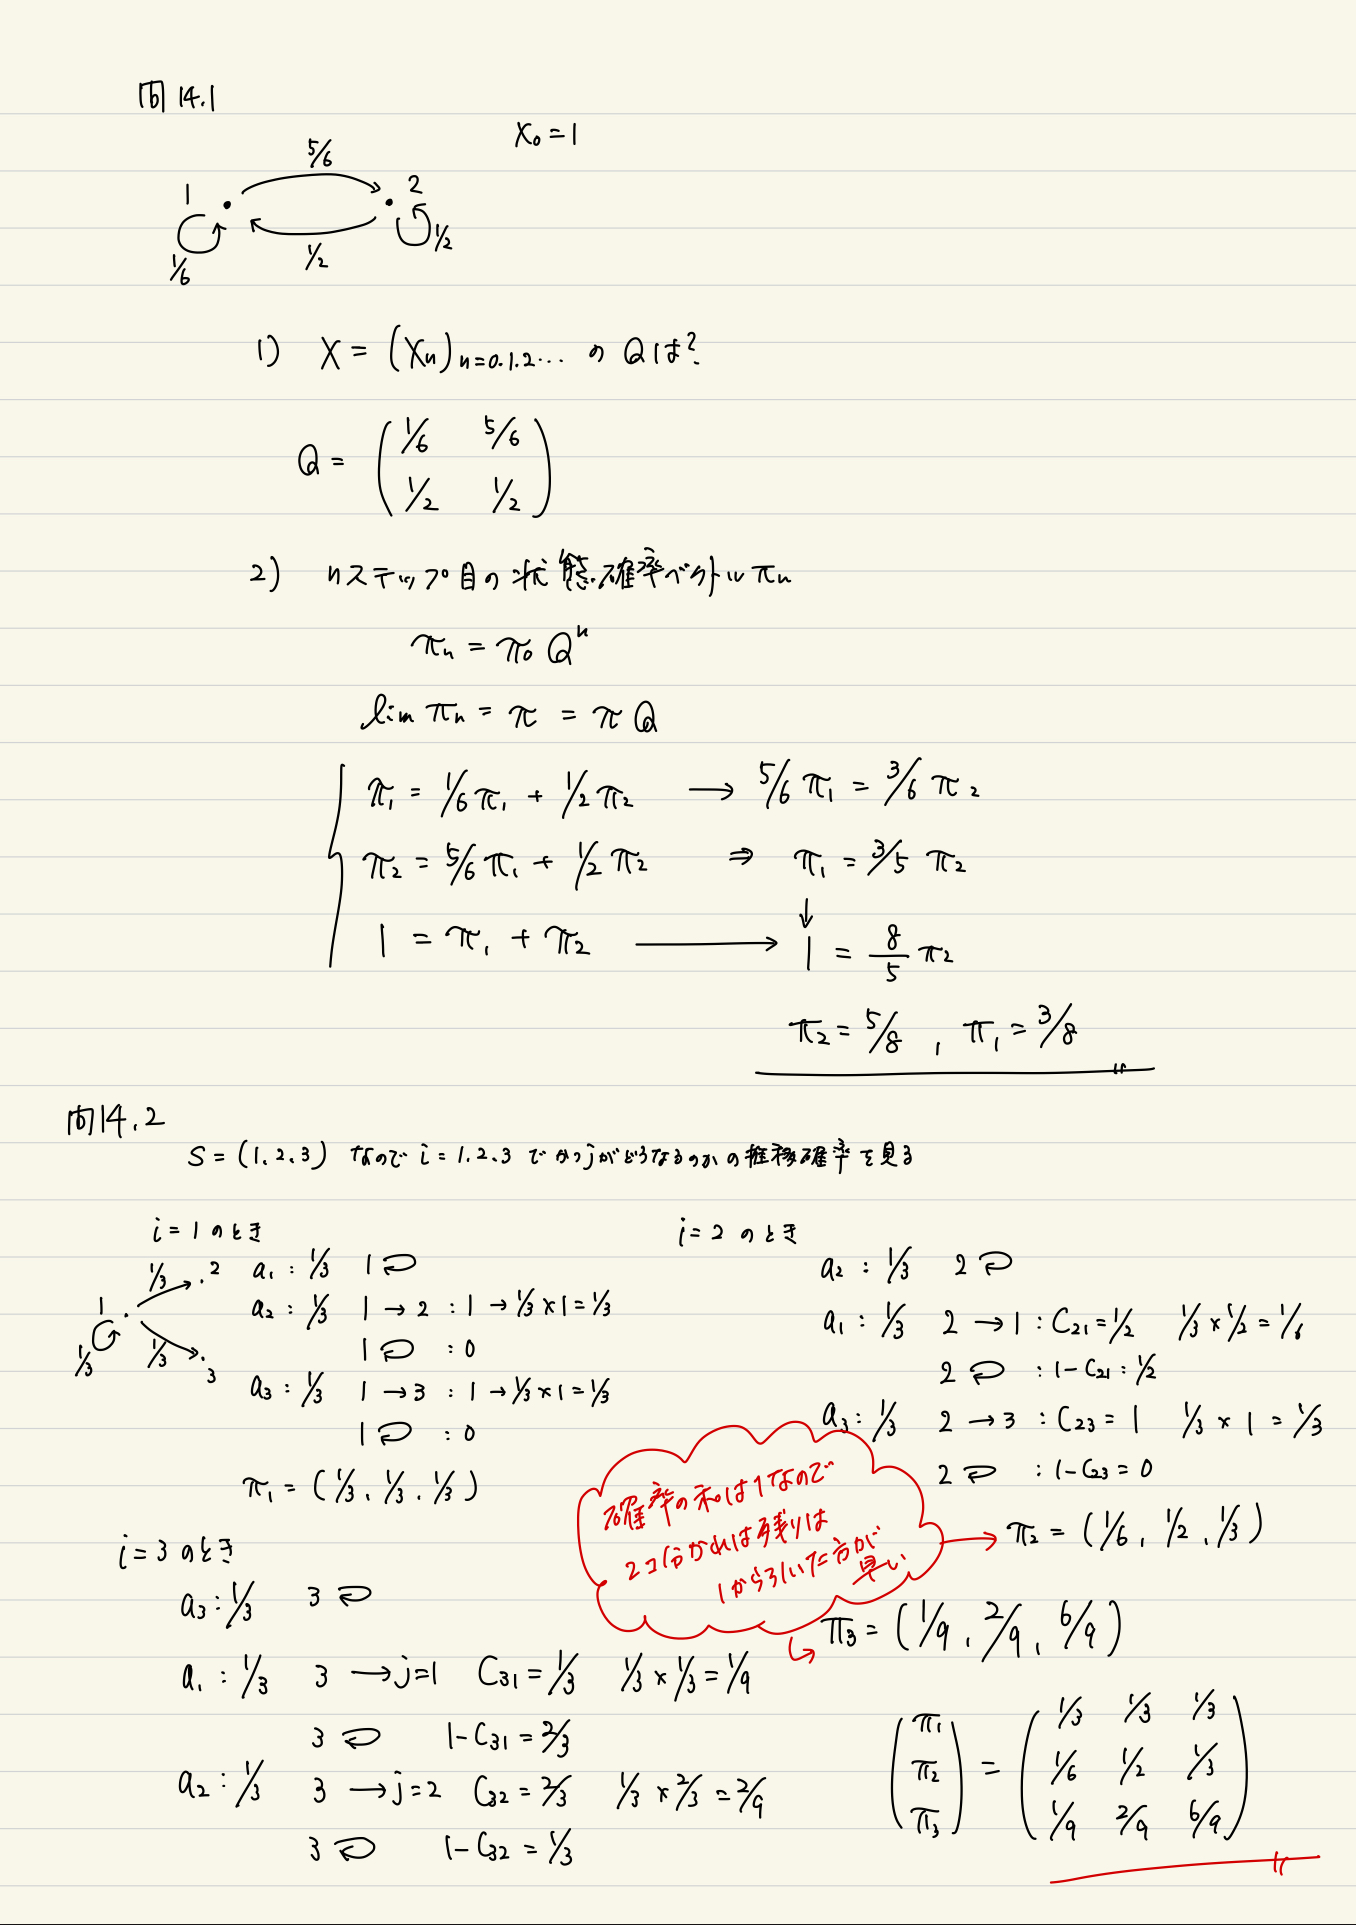 問14.1
X₀=1
5/6
1 2
1/6 1/2 1/2
1) X = (Xn) n=0.1.2… の Qは?
Q = (1/6 5/6
1/2 1/2)
2) nステップ目の状態確率ベクトル πn
πn = π₀ Qⁿ
lim πn = π = π Q
π₁ = 1/6 π₁ + 1/2 π₂ → 5/6 π₁ = 3/6 π₂
π₂ = 5/6 π₁ + 1/2 π₂ ⇒ π₁ = 3/5 π₂
↓
1 = π₁ + π₂ → 1 = 8/5 π₂
π₂ = 5/8 , π₁ = 3/8
問14.2
S = (1.2.3) なので i = 1.2.3 でかつjがどうなるのかの推移確率を見る
i = 1 のとき
1/3 2
1
1/3 1/3 3
a₁ : 1/3 1
a₂ : 1/3 1 → 2 : 1 → 1/3 × 1 = 1/3
1 : 0
a₃ : 1/3 1 → 3 : 1 → 1/3 × 1 = 1/3
1 : 0
π₁ = (1/3, 1/3, 1/3)
i = 2 のとき
a₂ : 1/3 2
a₁ : 1/3 2 → 1 : C₂₁ = 1/2 1/3 × 1/2 = 1/6
2 : 1 - C₂₁ : 1/2
a₃ : 1/3 2 → 3 : C₂₃ = 1 1/3 × 1 = 1/3
2 : 1 - C₂₃ = 0
確率の和は1なので
2コ分かれば残りは
1から引いた方が
早い
→ π₂ = (1/6, 1/2, 1/3)
i = 3 のとき
a₃ : 1/3 3
a₁ : 1/3 3 → j=1 C₃₁ = 1/3 1/3 × 1/3 = 1/9
3 1 - C₃₁ = 2/3
a₂ : 1/3 3 → j=2 C₃₂ = 2/3 1/3 × 2/3 = 2/9
3 1 - C₃₂ = 1/3
π₃ = (1/9, 2/9, 6/9)
(π₁ = (1/3 1/3 1/3
π₂ 1/6 1/2 1/3
π₃) 1/9 2/9 6/9)